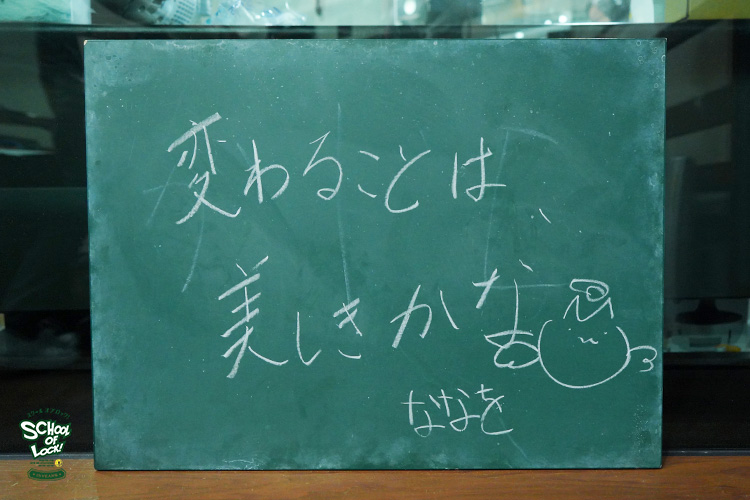 変わることは、
美しきかな
ななを
SCHOOL
OF
LOCK!